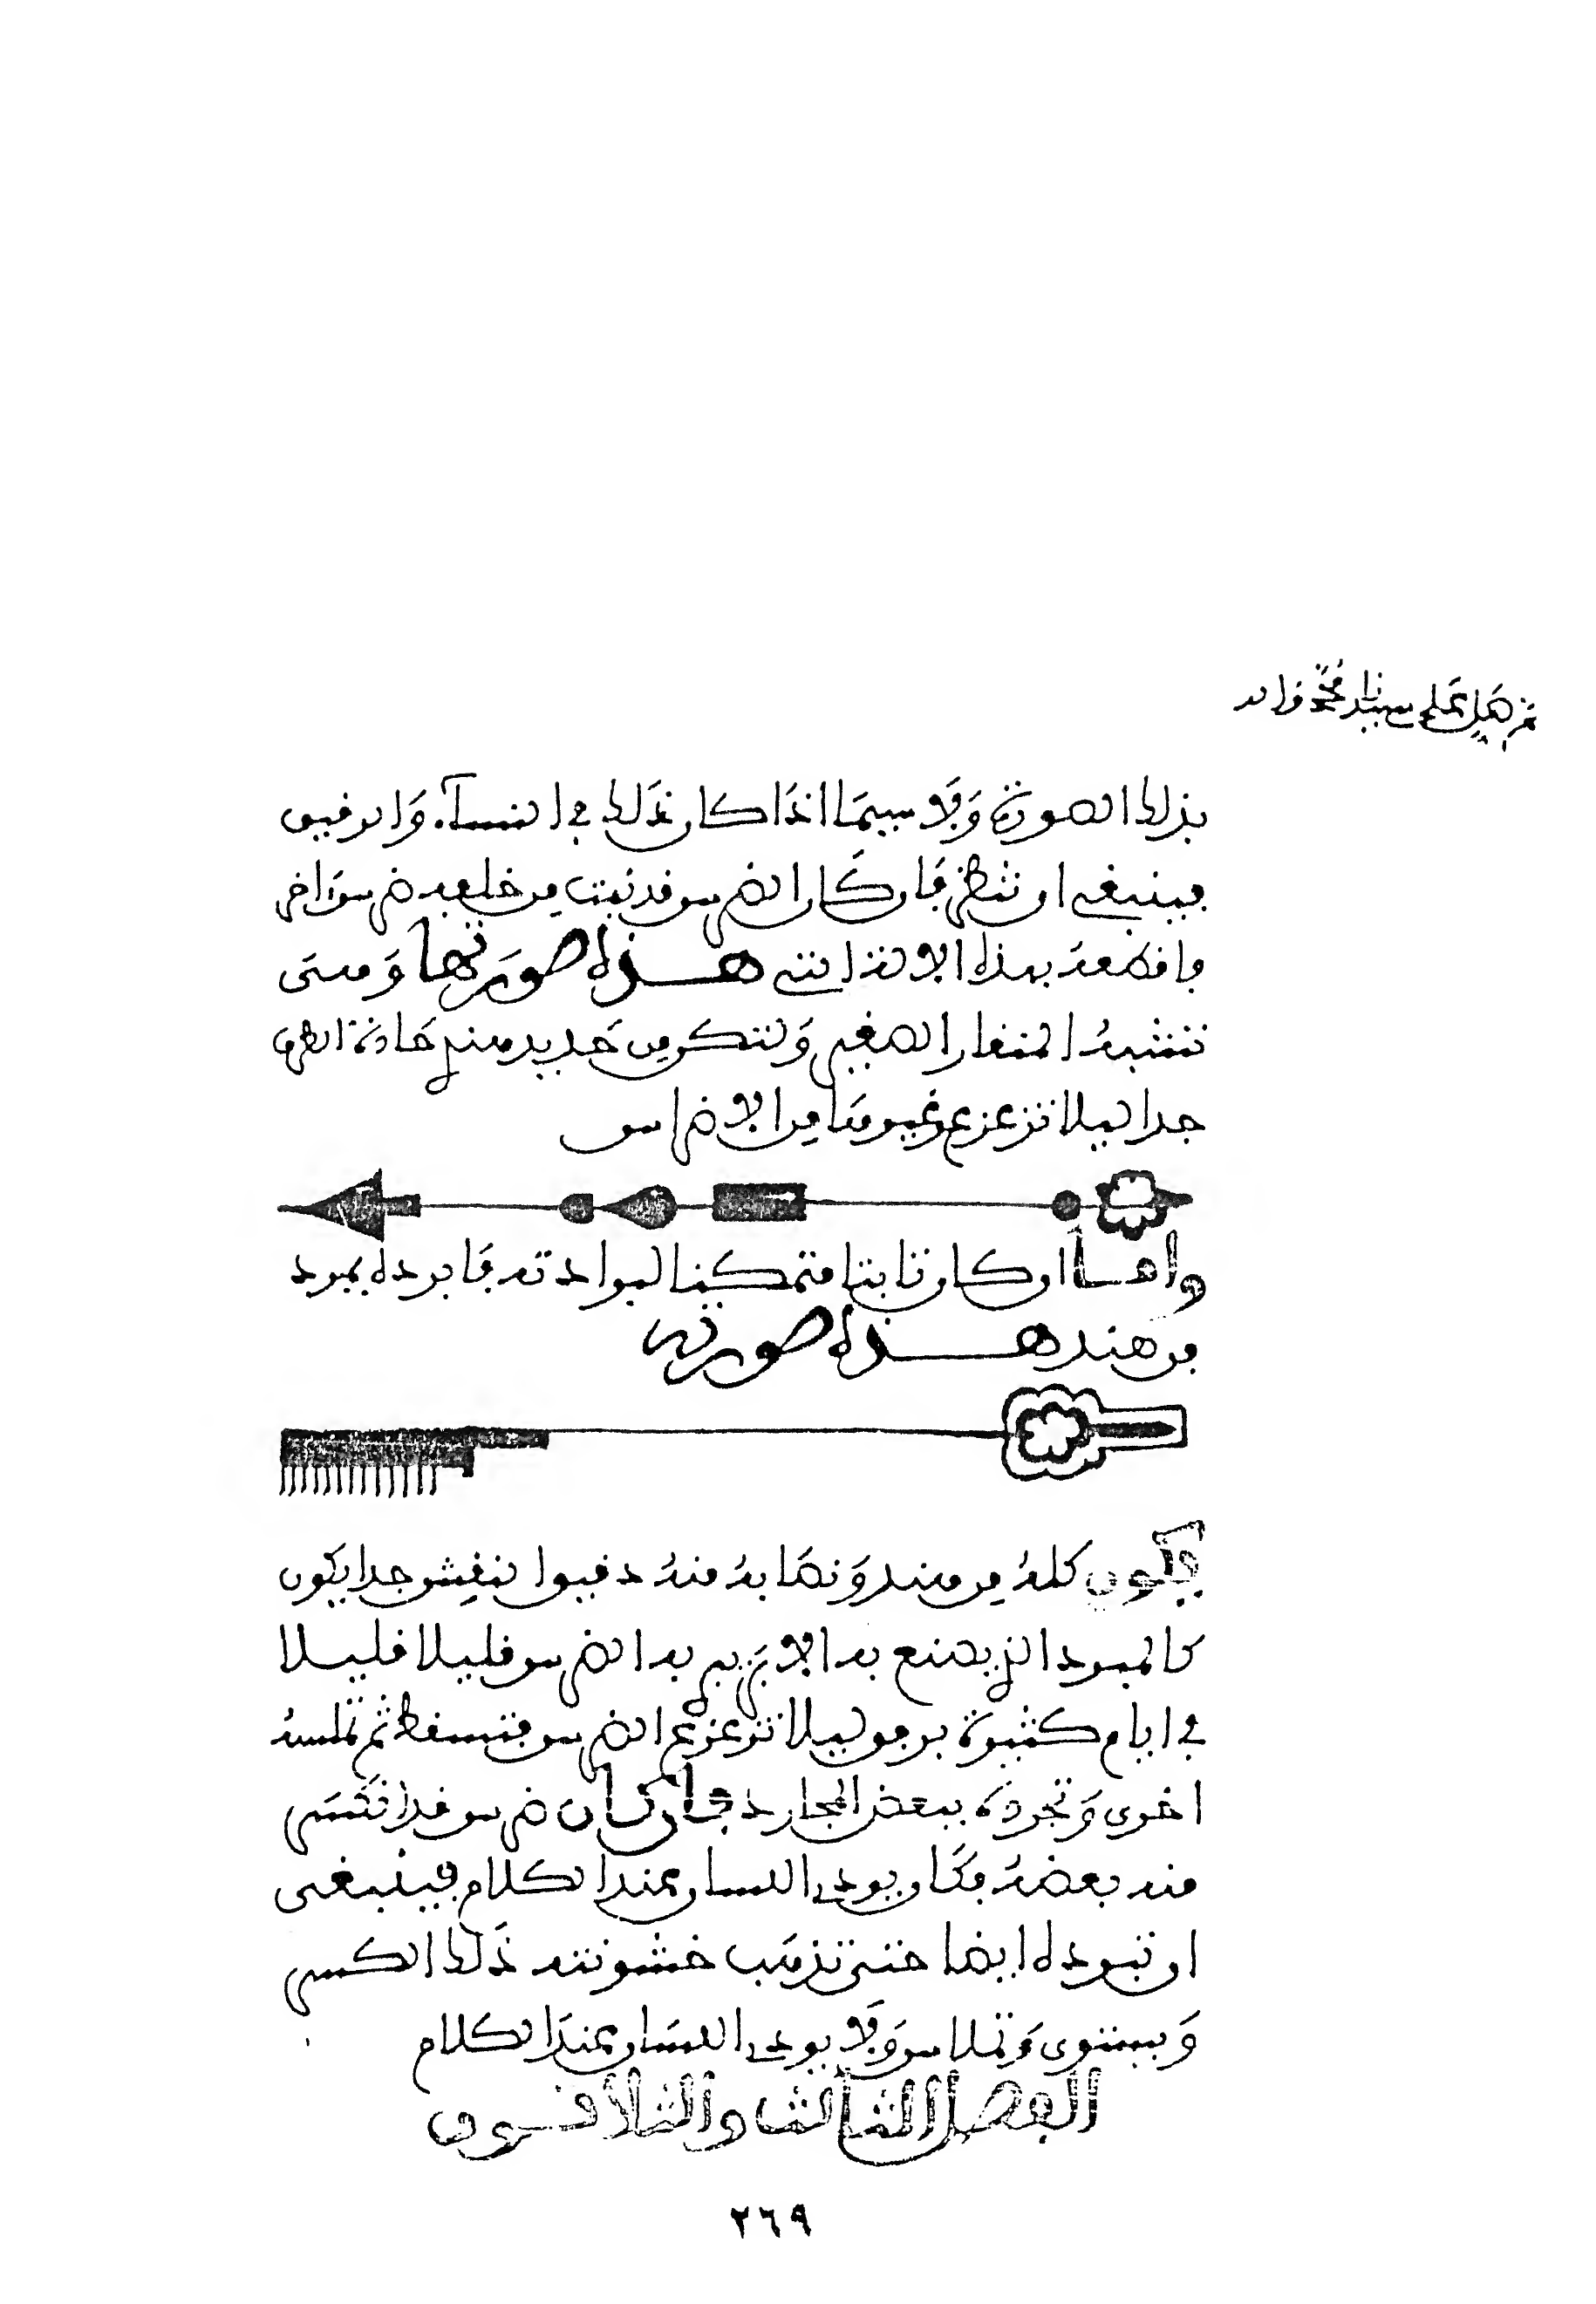 صل على سيدنا محمد واله
بذلك الصورة ولا سيما اذا كان ذلك في النساء والرقيق
فينبغي ان تنظر فان كان الضرس قد نبت من خلفه ضرس اخر
فاقطعه بهذه الالة التي هذه صورتها وهي
تشبه المنقار الصغير ولتكن من حديد هندي حادة الطرف
جدا ليلا تزعزع غيرها من الاضراس
واما ان كان ثابتا متمكنا لبرادته فابرده بمبرد
من هند هذه صورته
يكون كله من هند ونصابه منه دقيق النقش جدا يكون
كالمبرد الذي يصنع به الابر يبرد به الضرس قليلا قليلا
في ايام كثيرة برفق ليلا تزعزع الضرس فتسقط ثم تملسه
اخرى وتجرده ببعض المجارد فان كان ضرس قد انكسر
منه بعضه فكان يوذي اللسان عند الكلام فينبغي
ان تبرده ايضا حتى تذهب خشونته ذلك الكسر
ويستوي وتملاس ولا يوذي اللسان عند الكلام
الفصل الثالث والثلاثون
٢٦٩